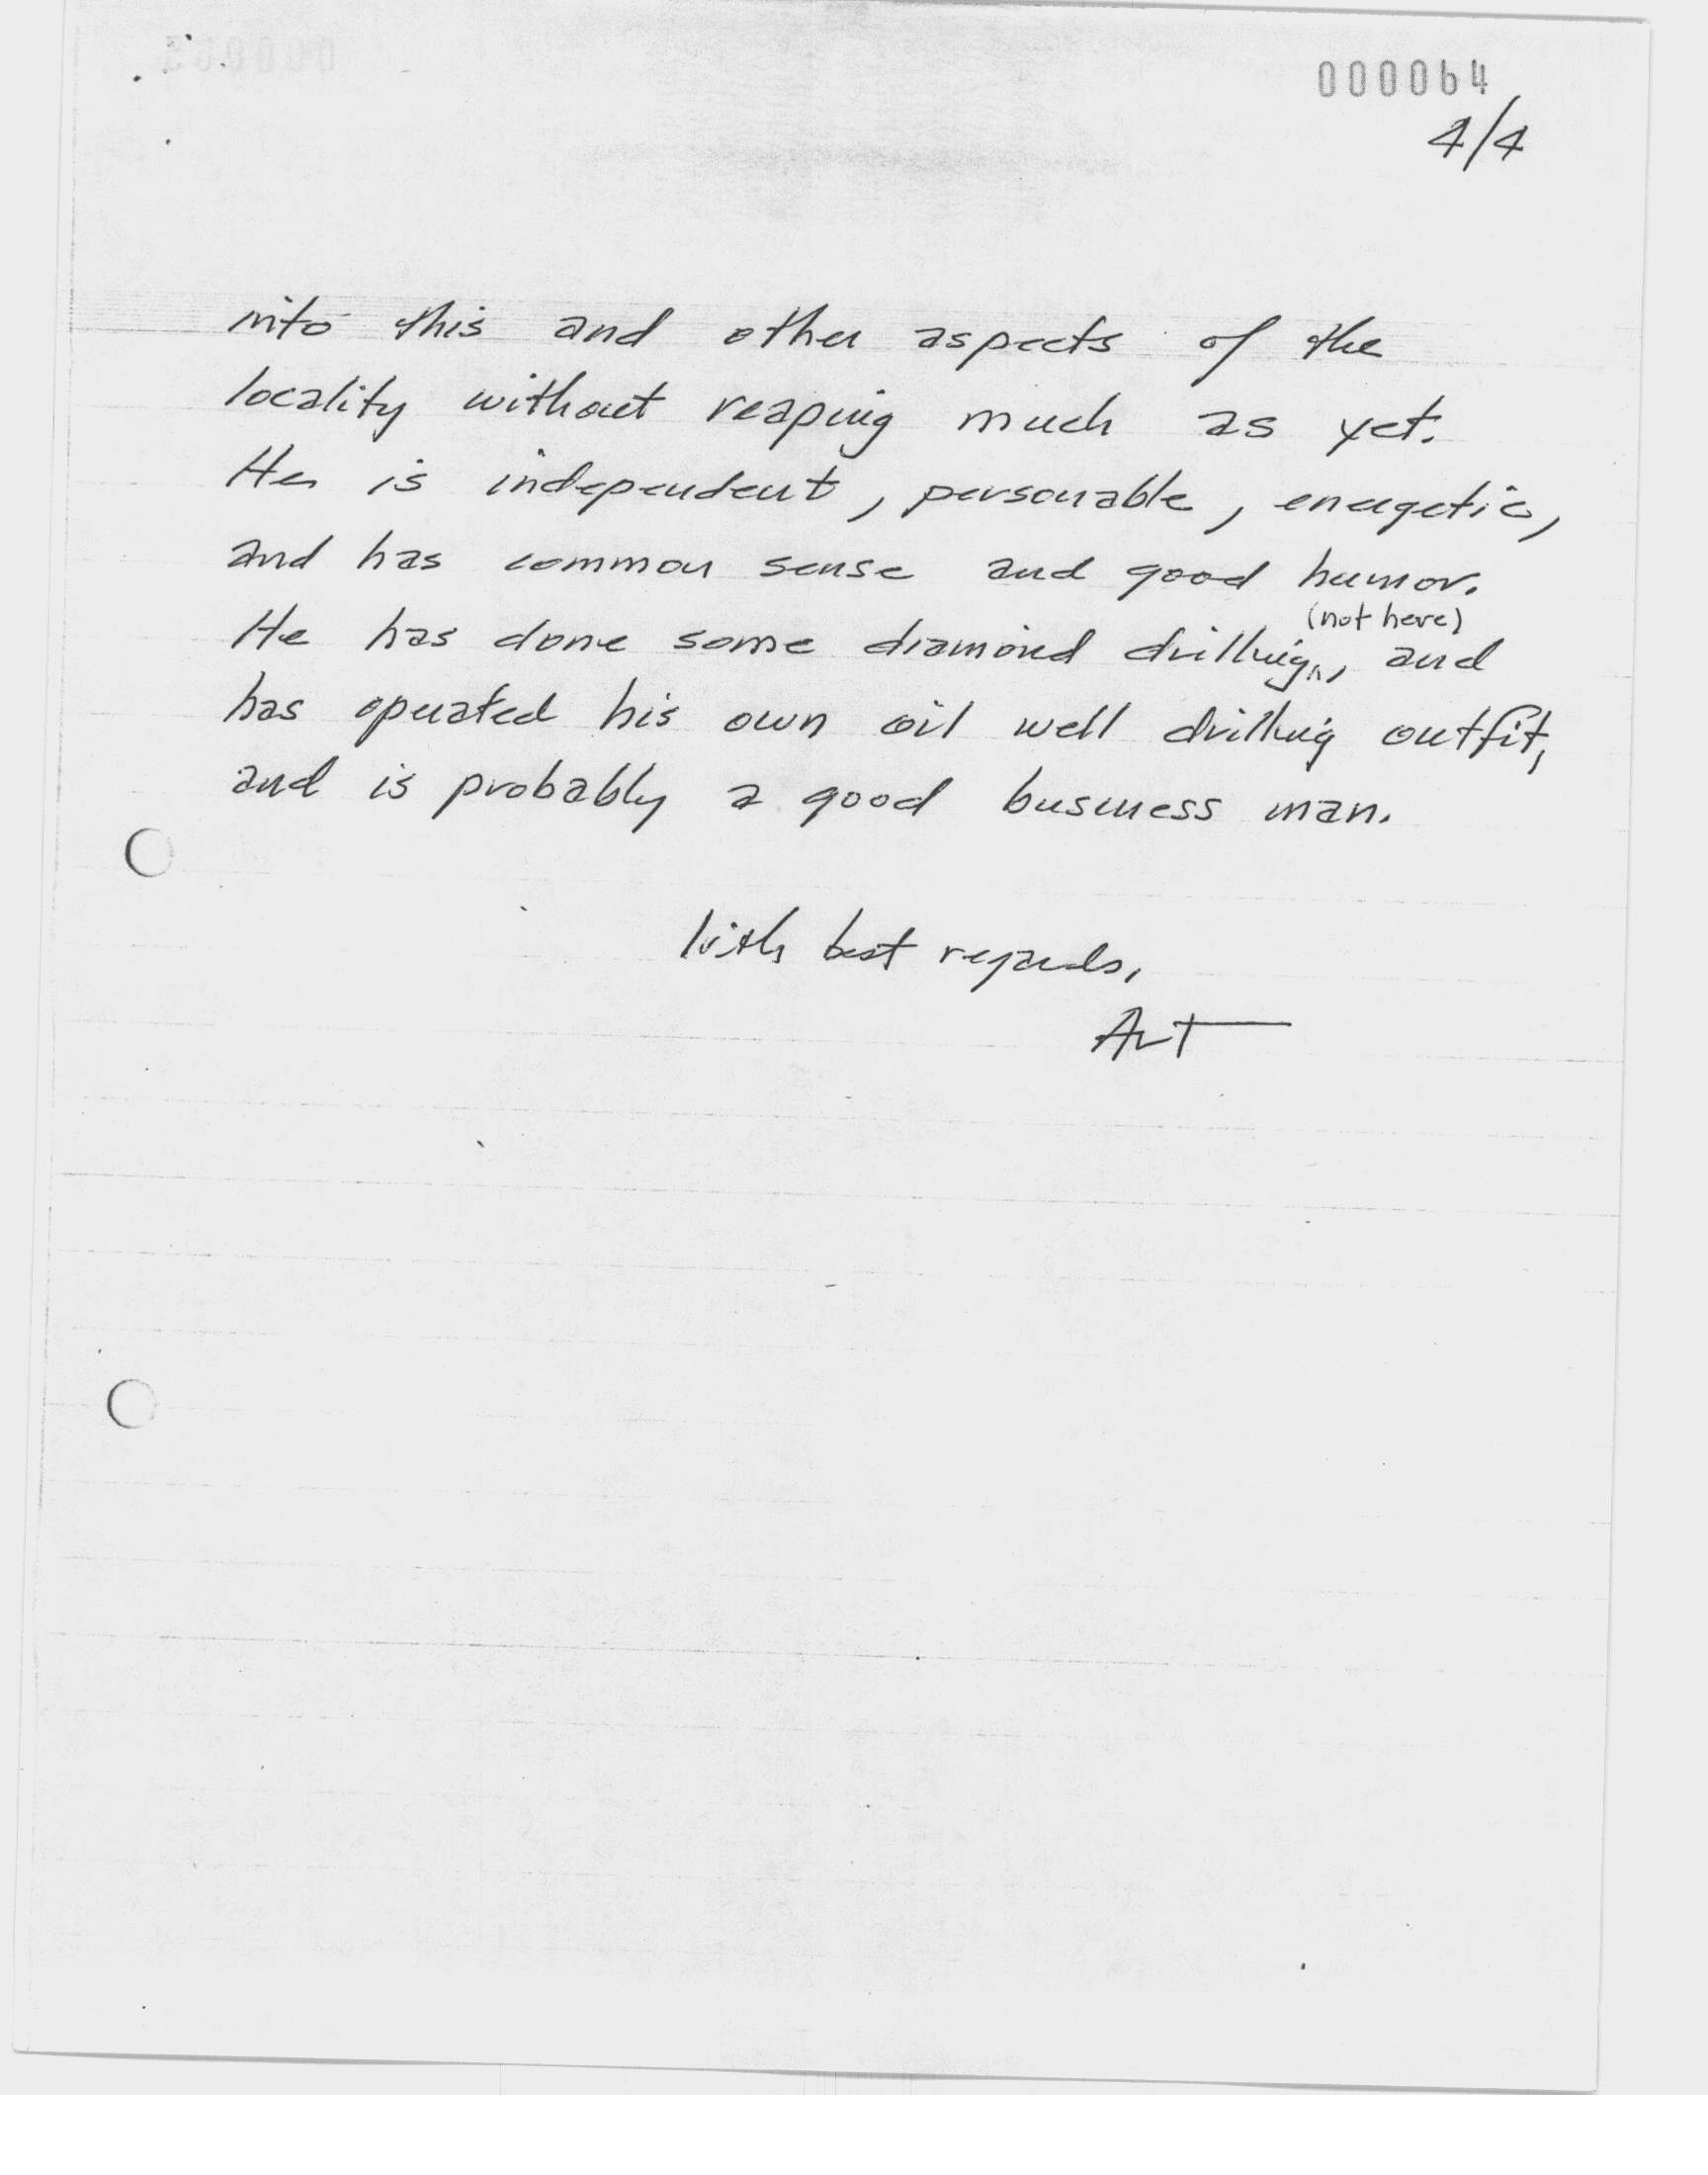 000064
4/4
into this and other aspects of the
locality without reaping much as yet.
He is independent, personable, energetic,
and has common sense and good humor.
(not here)
He has done some diamond drilling^, and
has operated his own oil well drilling outfit,
and is probably a good business man.
With best regards,
Art